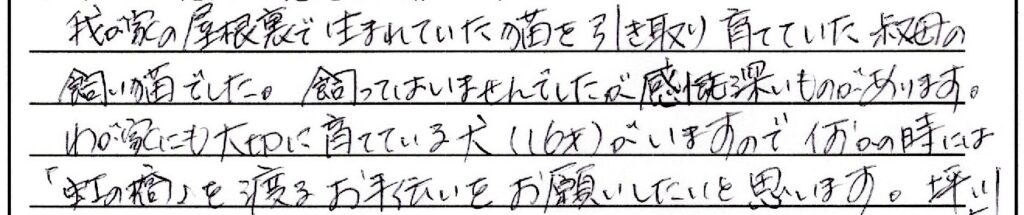 我が家の屋根裏で生まれていた猫を引き取り育てていた叔母の
飼い猫でした。飼ってはいませんでしたが感慨深いものがあります。
わが家にも大切に育てている犬(16才)がいますので何かの時には
「虹の橋」を渡るお手伝いをお願いしたいと思います。